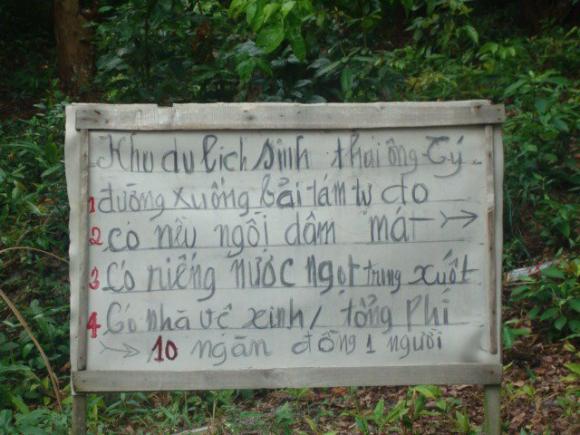 Khu du lich sinh thai ông Tý
1 đường xuống bải tám tự do
2 có nều ngồi dâm mát
3 Có riếng nước ngọt trung xuốt
4 Có nhà vệ xinh / tổng Phí
10 ngàn đồng 1 người